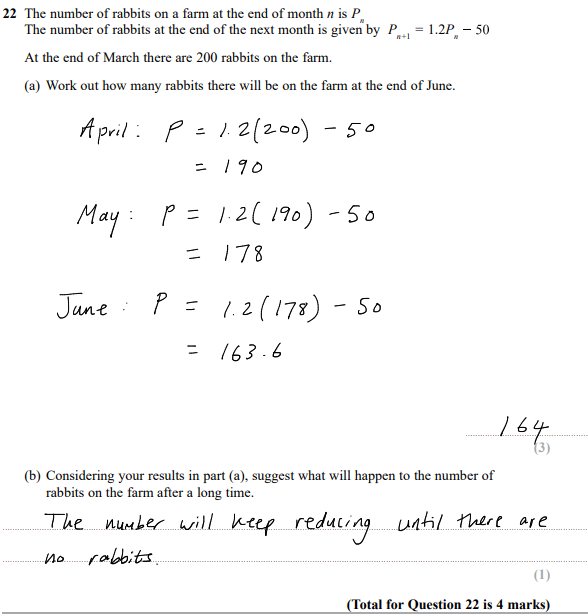 22 The number of rabbits on a farm at the end of month n is Pₙ
The number of rabbits at the end of the next month is given by Pₙ₊₁ = 1.2Pₙ − 50
At the end of March there are 200 rabbits on the farm.
(a) Work out how many rabbits there will be on the farm at the end of June.
April : P = 1.2(200) - 50
= 190
May : P = 1.2(190) - 50
= 178
June : P = 1.2(178) - 50
= 163.6
164
(3)
(b) Considering your results in part (a), suggest what will happen to the number of
rabbits on the farm after a long time.
The number will keep reducing until there are
no rabbits.
(1)
(Total for Question 22 is 4 marks)